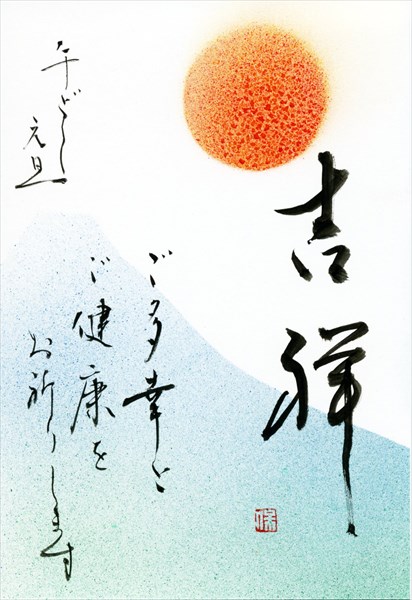 吉祥
ご多幸と
ご健康を
お祈りします
午どし
元旦